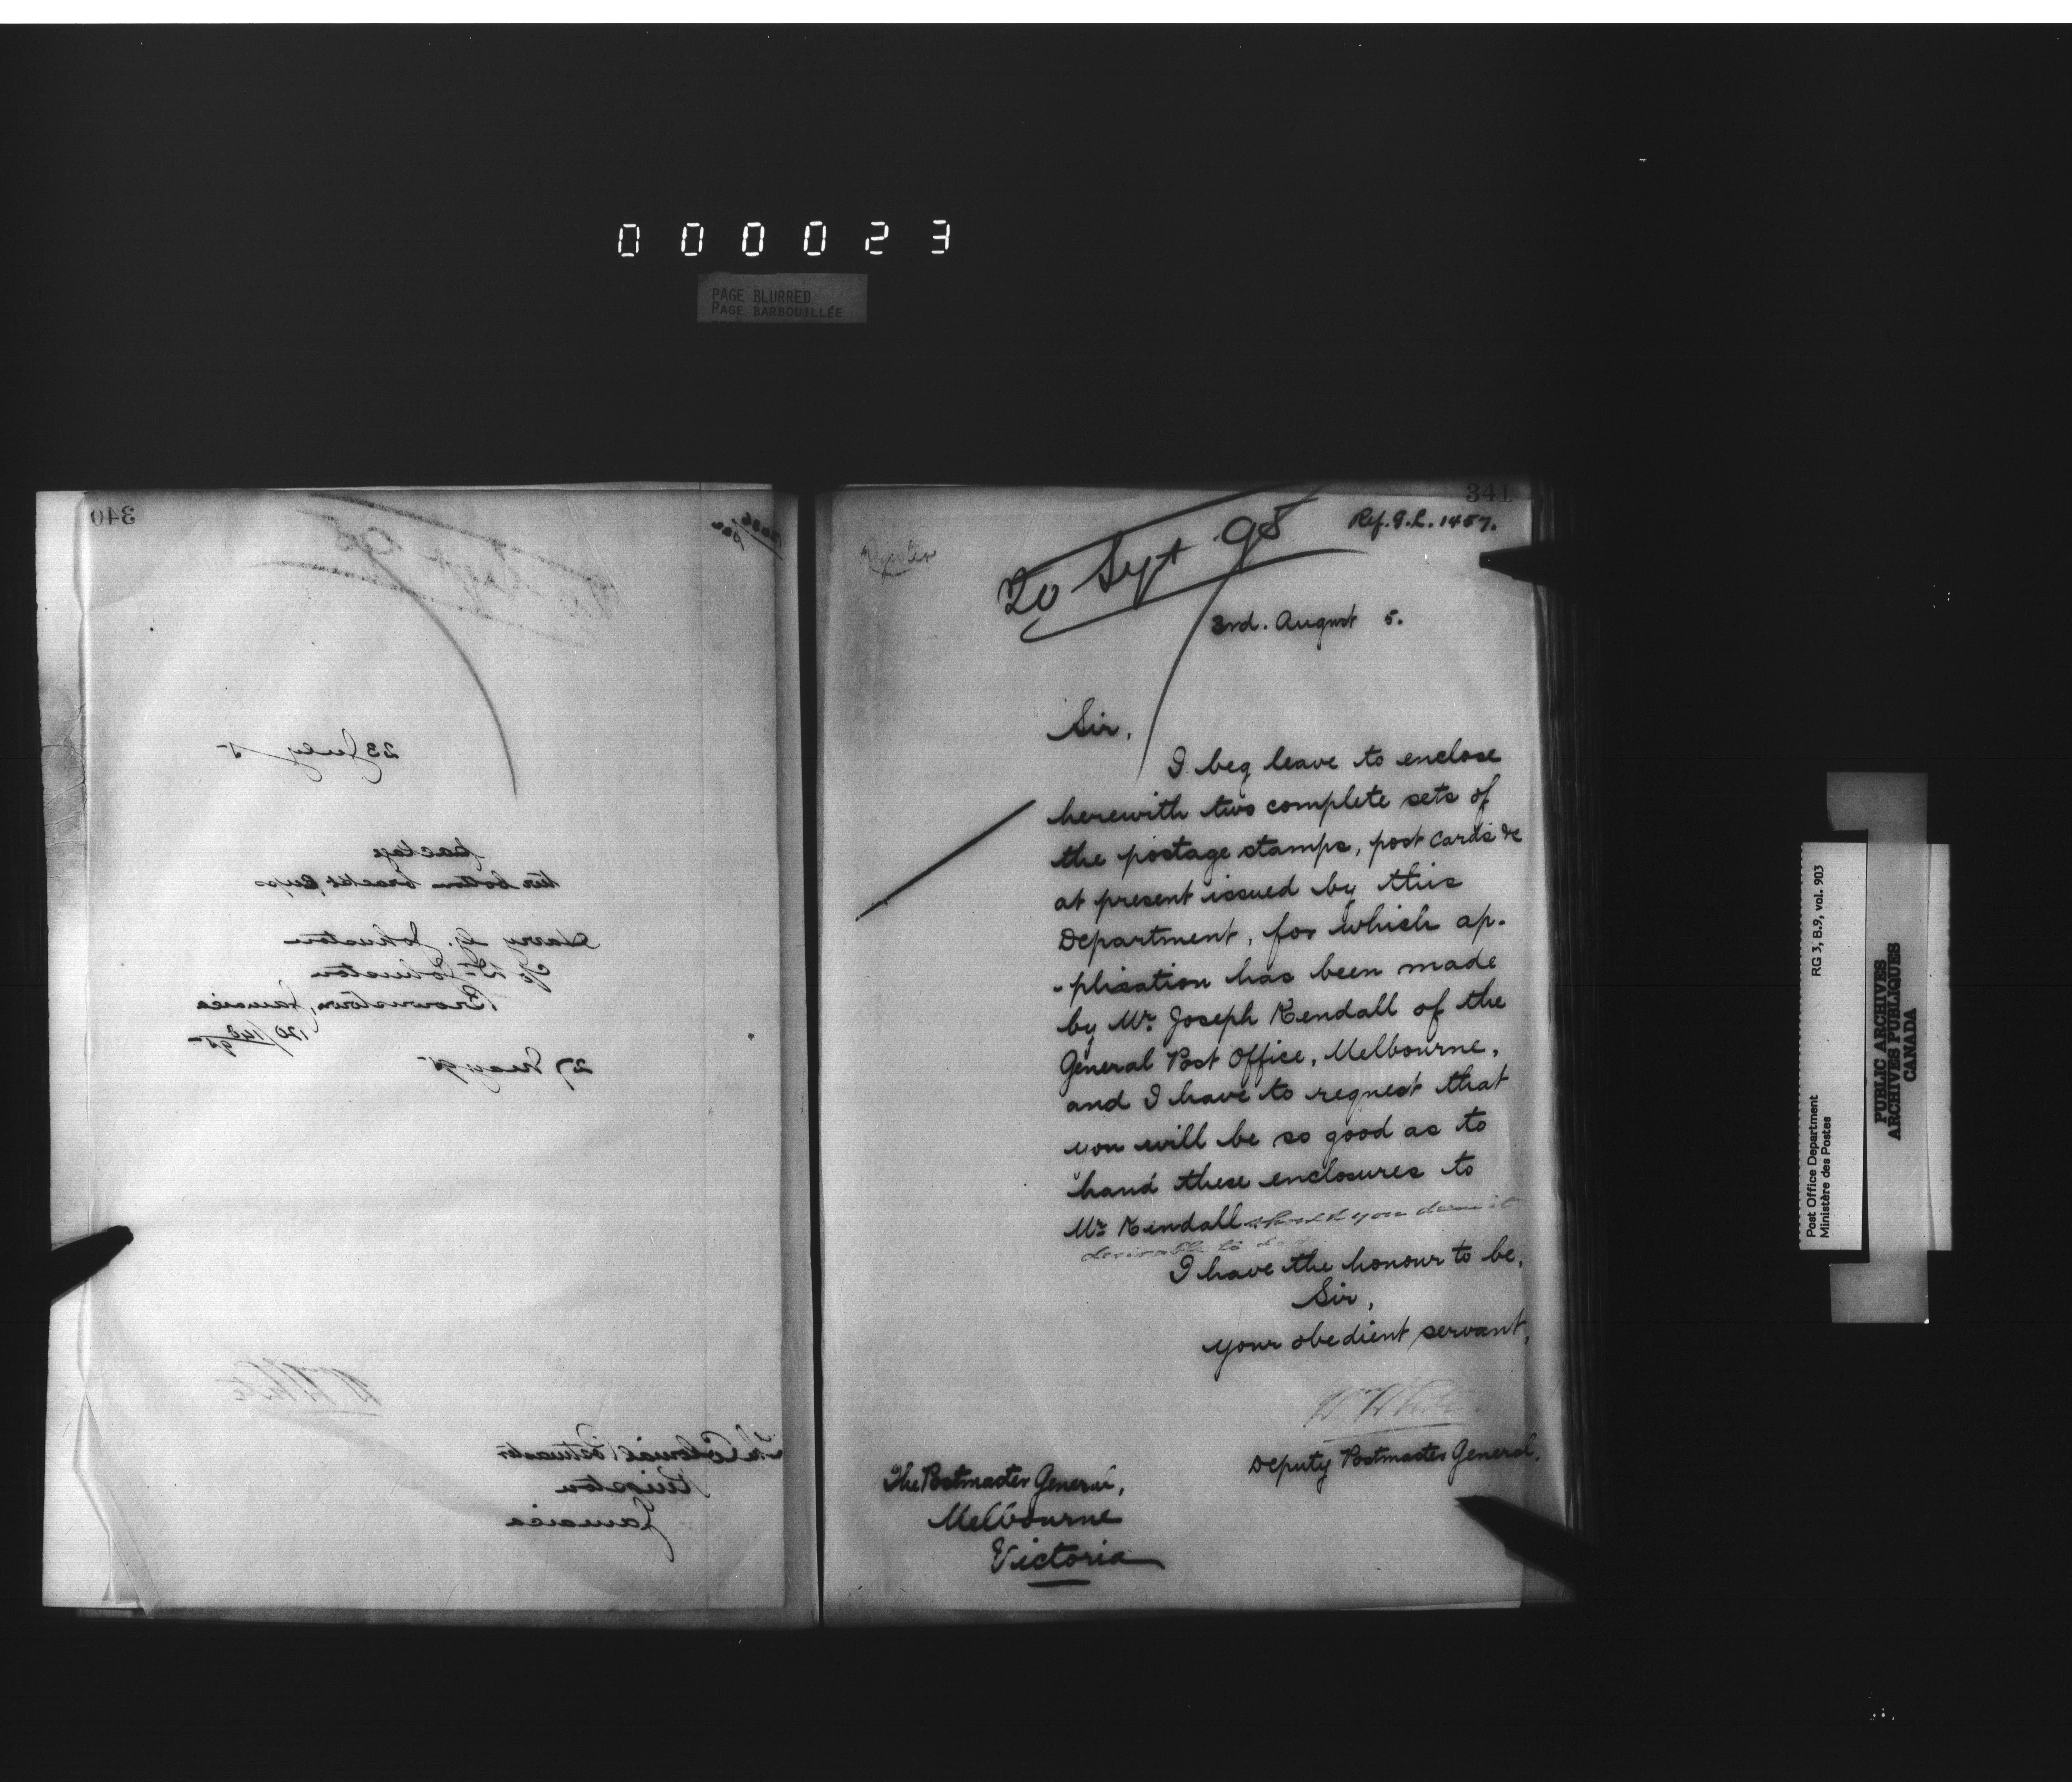 000023
PAGE BLURRED
PAGE BARBOUILLÉE
340
23 July 5
package
ten bottom bracket cups
Harry G. Johnston
c/o Dr. Johnston
Brownstown, Jamaica
27 May 95
Wm White
The Colonial Postmaster
Kingston
Jamaica
341
Ref. G.L. 1457.
20 Sept 95
3rd. August 5.
Sir,
I beg leave to enclose
herewith two complete sets of
the postage stamps, post cards &c
at present issued by this
Department, for which ap-
-plication has been made
by Mr. Joseph Kendall of the
General Post Office, Melbourne,
and I have to request that
you will be so good as to
hand these enclosures to
Mr. Kendall should you deem it
desirable to do
I have the honour to be,
Sir,
your obedient servant,
Wm White
Deputy Postmaster General.
The Postmaster General,
Melbourne
Victoria
Post Office Department
Ministère des Postes
RG 3, B.9, vol. 903
PUBLIC ARCHIVES
ARCHIVES PUBLIQUES
CANADA